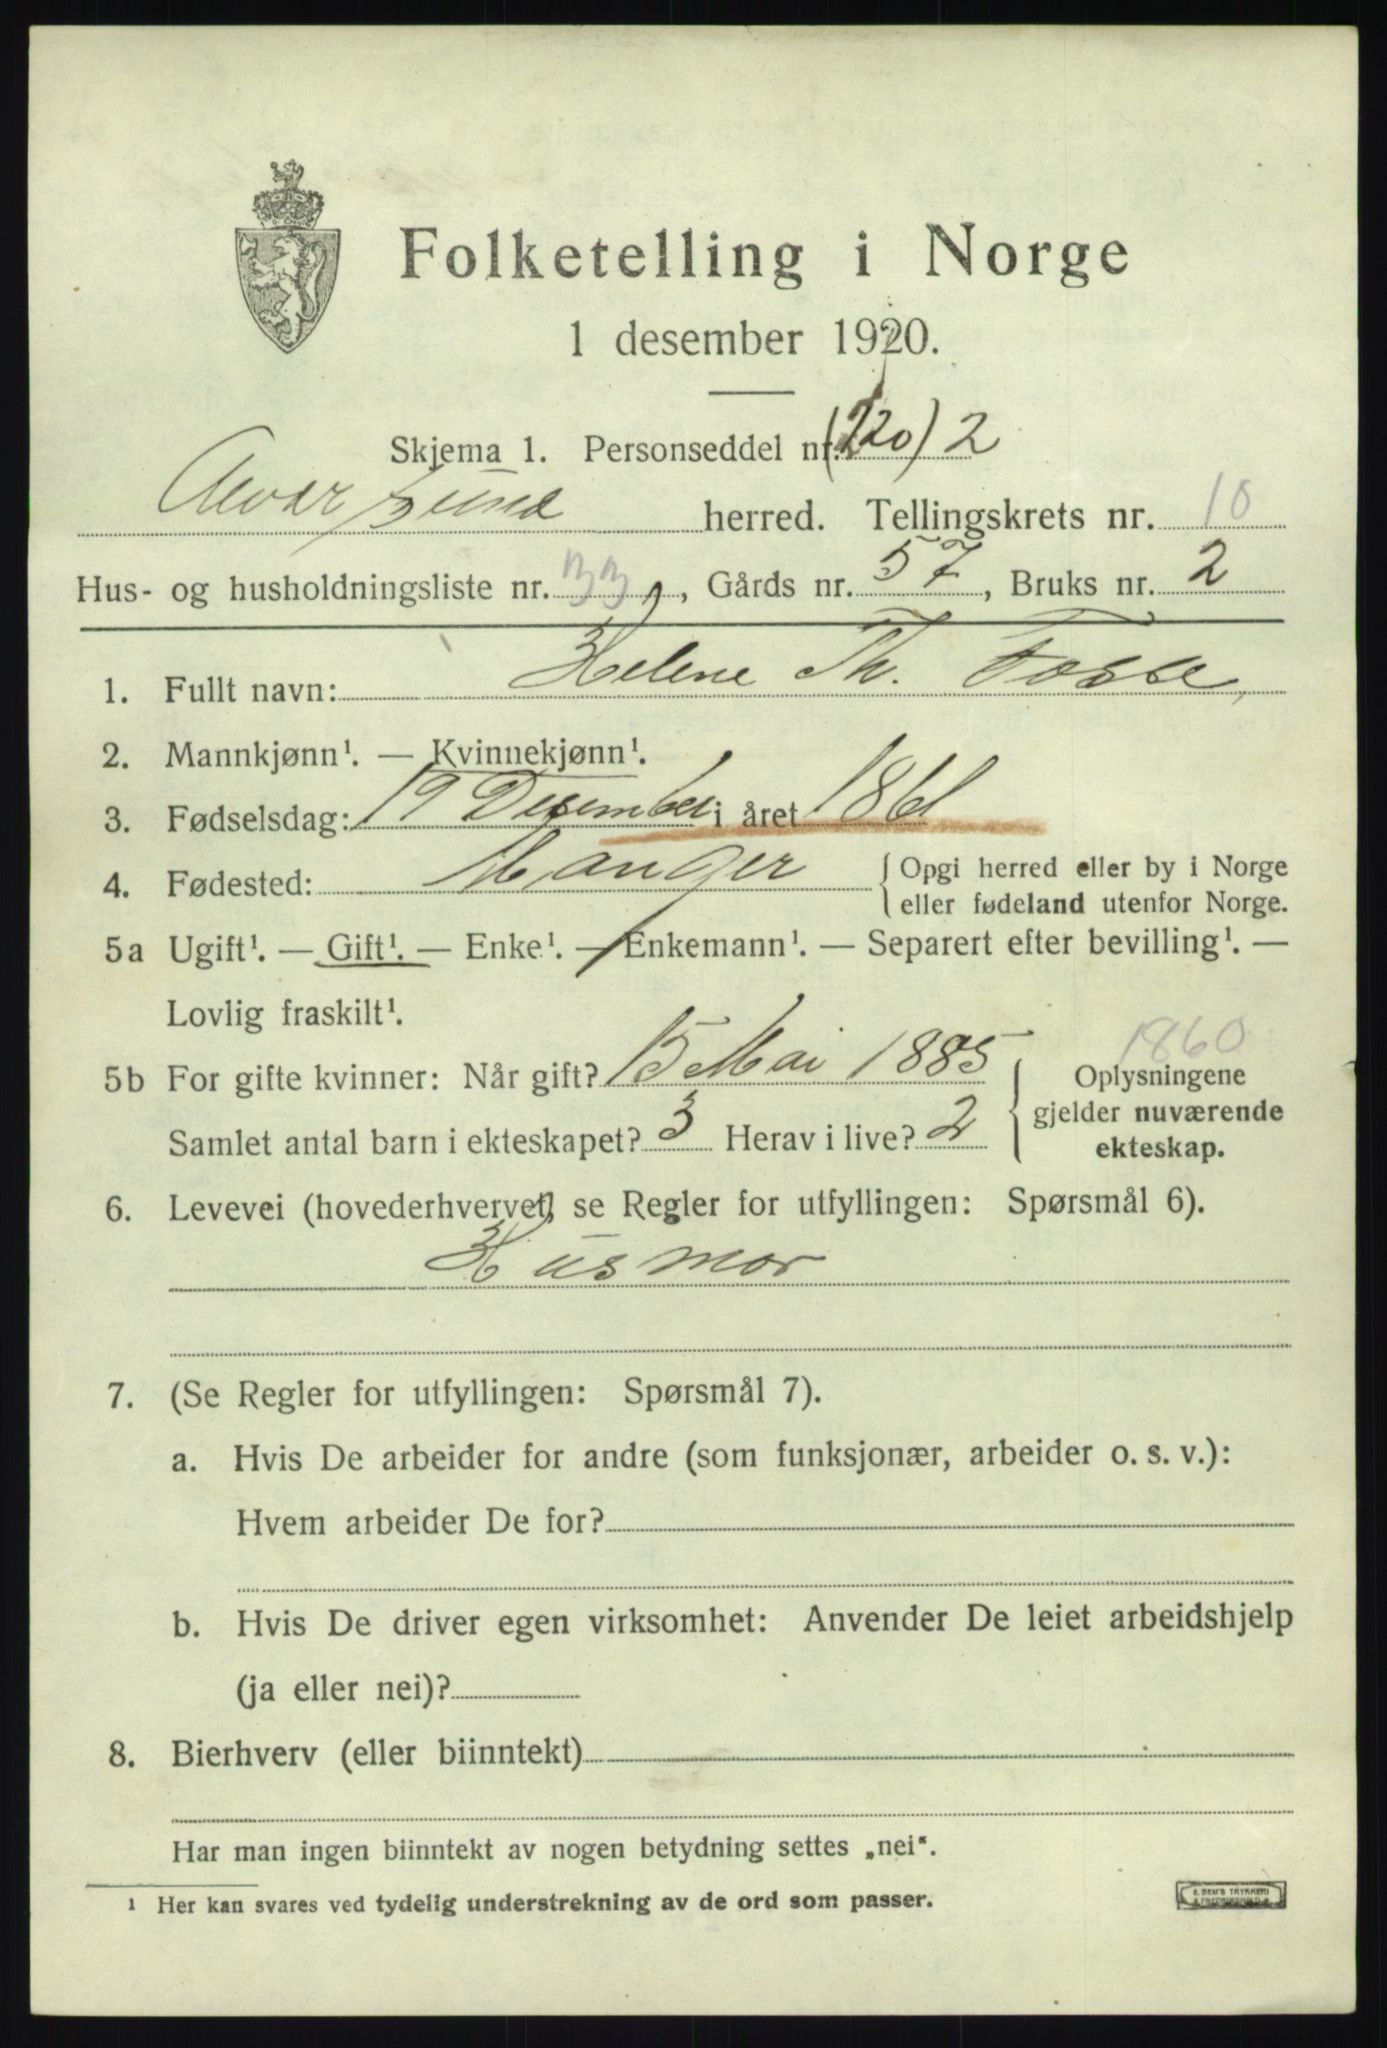 Folketelling i Norge
1 desember 1920.
Skjema 1. Personseddel nr. (220) 2
Alversund herred. Tellingskrets nr. 10
Hus- og husholdningsliste nr. 33, Gårds nr. 57, Bruks nr. 2
1. Fullt navn: Helene Th. Fosse,
2. Mannkjønn¹. — Kvinnekjønn¹.
3. Fødselsdag: 19 Desember i året 1861
4. Fødested: Manger { Opgi herred eller by i Norge
eller fødeland utenfor Norge.
5a Ugift¹. — Gift¹. — Enke¹. — Enkemann¹. — Separert efter bevilling¹. —
Lovlig fraskilt¹.
1860
5b For gifte kvinner: Når gift? 15 Mai 1885 { Oplysningene
gjelder nuværende
Samlet antal barn i ekteskapet? 3 Herav i live? 2
ekteskap.
6. Levevei (hovederhvervet, se Regler for utfyllingen: Spørsmål 6).
Husmor
7. (Se Regler for utfyllingen: Spørsmål 7).
a. Hvis De arbeider for andre (som funksjonær, arbeider o. s. v.):
Hvem arbeider De for?
b. Hvis De driver egen virksomhet: Anvender De leiet arbeidshjelp
(ja eller nei)?
8. Bierhverv (eller biinntekt)
Har man ingen biinntekt av nogen betydning settes „nei“.
¹ Her kan svares ved tydelig understrekning av de ord som passer.